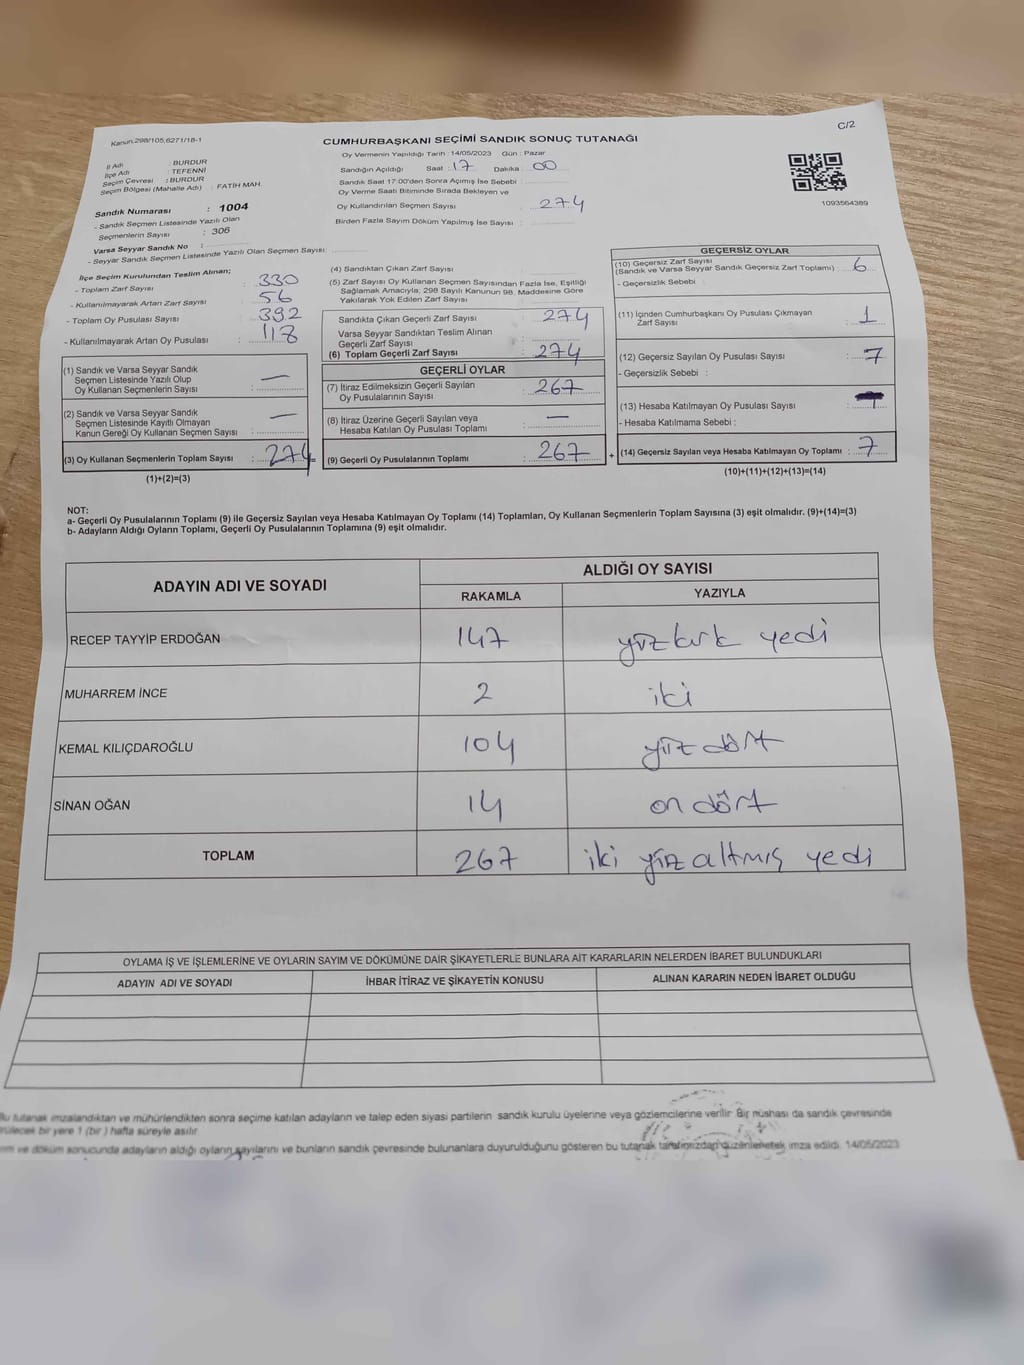 C/2
Kanun:298/105,6271/18-1
CUMHURBAŞKANI SEÇİMİ SANDIK SONUÇ TUTANAĞI
İl Adı : BURDUR
İlçe Adı : TEFENNİ
Seçim Çevresi : BURDUR
Seçim Bölgesi (Mahalle Adı) : FATİH MAH.
Sandık Numarası : 1004
- Sandık Seçmen Listesinde Yazılı Olan
Seçmenlerin Sayısı : 306
Varsa Seyyar Sandık No :
- Seyyar Sandık Seçmen Listesinde Yazılı Olan Seçmen Sayısı:
Oy Vermenin Yapıldığı Tarih : 14/05/2023 Gün : Pazar
Sandığın Açıldığı Saat : 17 Dakika : 00
Sandık Saat 17:00'den Sonra Açılmış İse Sebebi :
Oy Verme Saati Bitiminde Sırada Bekleyen ve
Oy Kullandırılan Seçmen Sayısı : 274
Birden Fazla Sayım Döküm Yapılmış İse Sayısı :
1093564389
İlçe Seçim Kurulundan Teslim Alınan;
- Toplam Zarf Sayısı : 330
- Kullanılmayarak Artan Zarf Sayısı : 56
- Toplam Oy Pusulası Sayısı : 392
- Kullanılmayarak Artan Oy Pusulası : 118
(1) Sandık ve Varsa Seyyar Sandık
Seçmen Listesinde Yazılı Olup
Oy Kullanan Seçmenlerin Sayısı : —
(2) Sandık ve Varsa Seyyar Sandık
Seçmen Listesinde Kayıtlı Olmayan
Kanun Gereği Oy Kullanan Seçmen Sayısı : —
(3) Oy Kullanan Seçmenlerin Toplam Sayısı : 274 =
(1)+(2)=(3)
(4) Sandıktan Çıkan Zarf Sayısı :
(5) Zarf Sayısı Oy Kullanan Seçmen Sayısından Fazla İse, Eşitliği
Sağlamak Amacıyla; 298 Sayılı Kanunun 98. Maddesine Göre
Yakılarak Yok Edilen Zarf Sayısı :
Sandıkta Çıkan Geçerli Zarf Sayısı : 274
Varsa Seyyar Sandıktan Teslim Alınan
Geçerli Zarf Sayısı :
(6) Toplam Geçerli Zarf Sayısı : 274
GEÇERLİ OYLAR
(7) İtiraz Edilmeksizin Geçerli Sayılan
Oy Pusulalarının Sayısı : 267
(8) İtiraz Üzerine Geçerli Sayılan veya
Hesaba Katılan Oy Pusulası Toplamı : —
(9) Geçerli Oy Pusulalarının Toplamı : 267 +
GEÇERSİZ OYLAR
(10) Geçersiz Zarf Sayısı
(Sandık ve Varsa Seyyar Sandık Geçersiz Zarf Toplamı) : 6
- Geçersizlik Sebebi :
(11) İçinden Cumhurbaşkanı Oy Pusulası Çıkmayan
Zarf Sayısı : 1
(12) Geçersiz Sayılan Oy Pusulası Sayısı : 7
- Geçersizlik Sebebi :
(13) Hesaba Katılmayan Oy Pusulası Sayısı :
- Hesaba Katılmama Sebebi :
(14) Geçersiz Sayılan veya Hesaba Katılmayan Oy Toplamı : 7
(10)+(11)+(12)+(13)=(14)
NOT:
a- Geçerli Oy Pusulalarının Toplamı (9) ile Geçersiz Sayılan veya Hesaba Katılmayan Oy Toplamı (14) Toplamları, Oy Kullanan Seçmenlerin Toplam Sayısına (3) eşit olmalıdır. (9)+(14)=(3)
b- Adayların Aldığı Oyların Toplamı, Geçerli Oy Pusulalarının Toplamına (9) eşit olmalıdır.
ADAYIN ADI VE SOYADI ALDIĞI OY SAYISI
RAKAMLA YAZIYLA
RECEP TAYYİP ERDOĞAN 147 yüzkırk yedi
MUHARREM İNCE 2 iki
KEMAL KILIÇDAROĞLU 104 yüz dört
SİNAN OĞAN 14 on dört
TOPLAM 267 iki yüz altmış yedi
OYLAMA İŞ VE İŞLEMLERİNE VE OYLARIN SAYIM VE DÖKÜMÜNE DAİR ŞİKAYETLERLE BUNLARA AİT KARARLARIN NELERDEN İBARET BULUNDUKLARI
ADAYIN ADI VE SOYADI İHBAR İTİRAZ VE ŞİKAYETİN KONUSU ALINAN KARARIN NEDEN İBARET OLDUĞU
Bu tutanak imzalandıktan ve mühürlendikten sonra seçime katılan adayların ve talep eden siyasi partilerin sandık kurulu üyelerine veya gözlemcilerine verilir. Bir nüshası da sandık çevresinde
bir yere 1 (bir) hafta süreyle asılır.
ve döküm sonucunda adayların aldığı oyların sayılarını ve bunların sandık çevresinde bulunanlara duyurulduğunu gösteren bu tutanak tarafımızdan düzenlenerek imza edildi. 14/05/2023